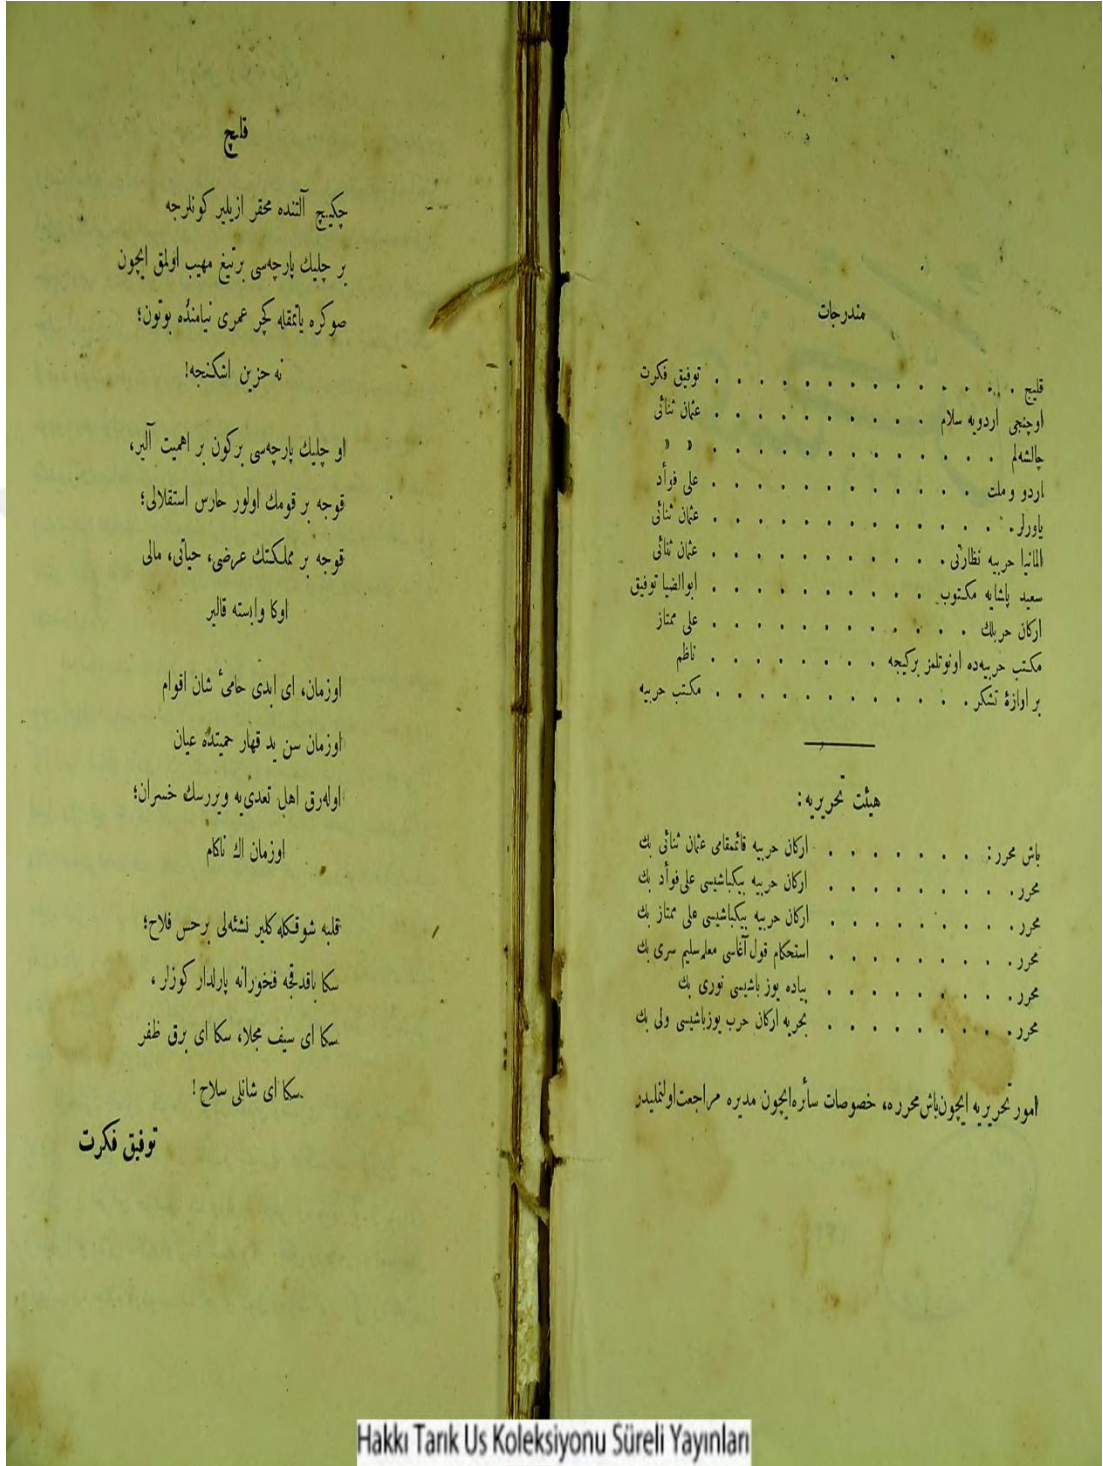 مندرجات
قلیچ . . . . . . . . . . . . . توفیق فکرت
اوچنجی اردویه سلام . . . . . . . . . . عثمان ثنائی
چالشه‌لم . . . . . . . . . . . . . » »
اردو و ملت . . . . . . . . . . . . علی فوأد
یاورلر . . . . . . . . . . . . . عثمان ثنائی
المانیا حربیه نظارتی . . . . . . . . . . عثمان ثنائی
سعید پاشایه مکتوب . . . . . . . . . . ابوالضیا توفیق
ارکان حربلك . . . . . . . . . . . . علی ممتاز
مکتب حربیه‌ده اونوتلمز برکیجه . . . . . . . . ناظم
بر اوازهٔ تشکر . . . . . . . . . . . . مکتب حربیه
هیئت تحریریه :
باش محرر : . . . . . . . ارکان حربیه قائمقامی عثمان ثنائی بك
محرر . . . . . . . . . ارکان حربیه بیکباشیسی علی فوأد بك
محرر . . . . . . . . . ارکان حربیه بیکباشیسی علی ممتاز بك
محرر . . . . . . . . . استحکام قول آغاسی معلم سلیم سری بك
محرر . . . . . . . . . پیاده یوز باشیسی نوری بك
محرر . . . . . . . . . بحریه ارکان حرب یوزباشیسی ولی بك
امور تحریریه ایچون باش محرره، خصوصات سائره ایچون مدیره مراجعت اولنملیدر
قلیچ
چکیچ آلتنده محقر ازیلیر کونلرجه
بر چلیك پارچه‌سی برتیغ مهیب اولمق ایچون
صوکره یاتمقله کچر عمری نیامنده بوتون؛
نه حزین اشکنجه!
او چلیك پارچه‌سی برکون بر اهمیت آلیر،
قوجه بر قومك اولور حارس استقلالی؛
قوجه بر مملکتك عرضی، حیاتی، مالی
اوکا وابسته قالیر
اوزمان، ای ابدی حامیٔ شان اقوام
اوزمان سن ید قهار حمیتده عیان
اوله‌رق اهل تعدی‌یه ویررسك خسران؛
اوزمان اك ناکام
قلبه شوقکله کلیر نشئه‌لی برحس فلاح؛
سکا باقدقجه فخورانه پارلدار کوزلر ،
سکا ای سیف مجلا، سکا ای برق ظفر
سکا ای شانلی سلاح !
توفیق فکرت
Hakkı Tarık Us Koleksiyonu Süreli Yayınları